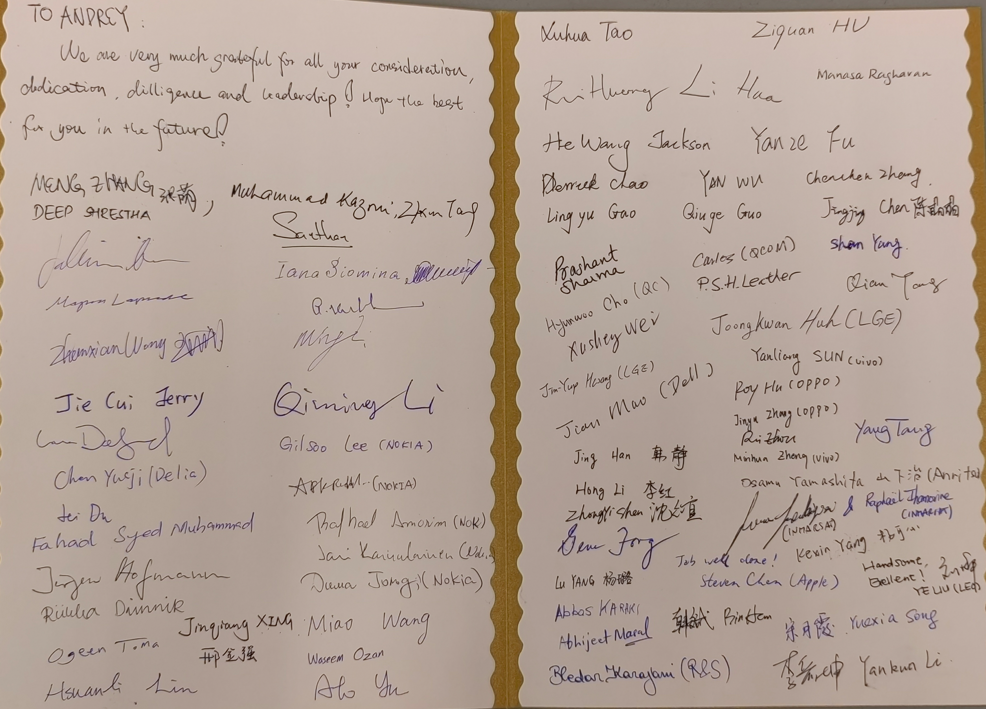 TO ANDREY:
We are very much grateful for all your consideration,
dedication, dilligence and leadership! Hope the best
for you in the future!
MENG ZHANG 张萌, Muhammad Kazmi, Zhixun Tang
DEEP SHRESTHA
Sarthan
Iana Siomina
Zhanxian Wang
Jie Cui Jerry
Qiming Li
Gilsoo Lee (NOKIA)
Chen Yueji (Delia)
(NOKIA)
Fei Du
Fahad Syed Muhammad
Rafhael Amorim (Nok)
Jani
Jörgen Hofmann
Duma Jongi (Nokia)
Riikka Dimnik
Jinqiang XING
邢金强
Miao Wang
Ogeen Toma
Waseem Ozan
Hsuanli Lin
Ato Yu
Xuhua Tao
Ziquan HU
RuiHuang Li Hua
Manasa Raghavan
He Wang Jackson
Yanze Fu
Derrick Chao
YAN WU
Chenchen Zhang
Lingyu Gao
Qiuge Guo
Jingjing Chen 陈晶晶
Prashant
Sharma
Carlos (QCOM)
Shan Yang
P.S.H. Leather
Qian Yang
Hyunwoo Cho (QC)
Xusheng Wei
Joongkwan Huh (LGE)
Jin-Yup Hwang (LGE)
Yanliang SUN (vivo)
Jian Mao (Dell)
Roy Hu (OPPO)
Jinyu Zhang (OPPO)
Rui Zhou
Yang Tang
Jing Han 韩静
Minhun Zheng (vivo)
Hong Li 李红
Osamu Yamashita 山下治 (Anritsu)
Zhongyi Shen 沈
& Raphael
(INMARSAT)
(INMARSAT)
Gene Fong
Job well done!
Kexin Yang
Lu YANG 杨璐
Steven Chen (Apple)
Handsome,
Excellent!
YE LIU (LEO)
Abbas KARAKI
Abhijeet Masal
韩斌 Bin Han
宋月霞 Yuexia Song
Bledar Karajani (R&S)
Yankun Li